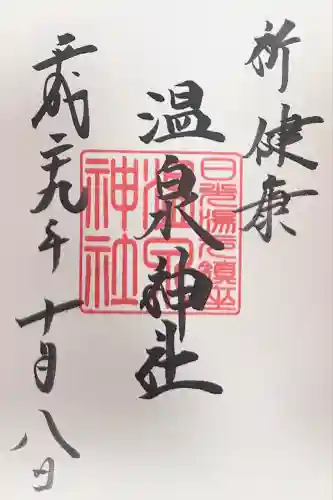 祈健康
温泉神社
日光湯元鎮座
温泉
神社
平成二九年十月八日